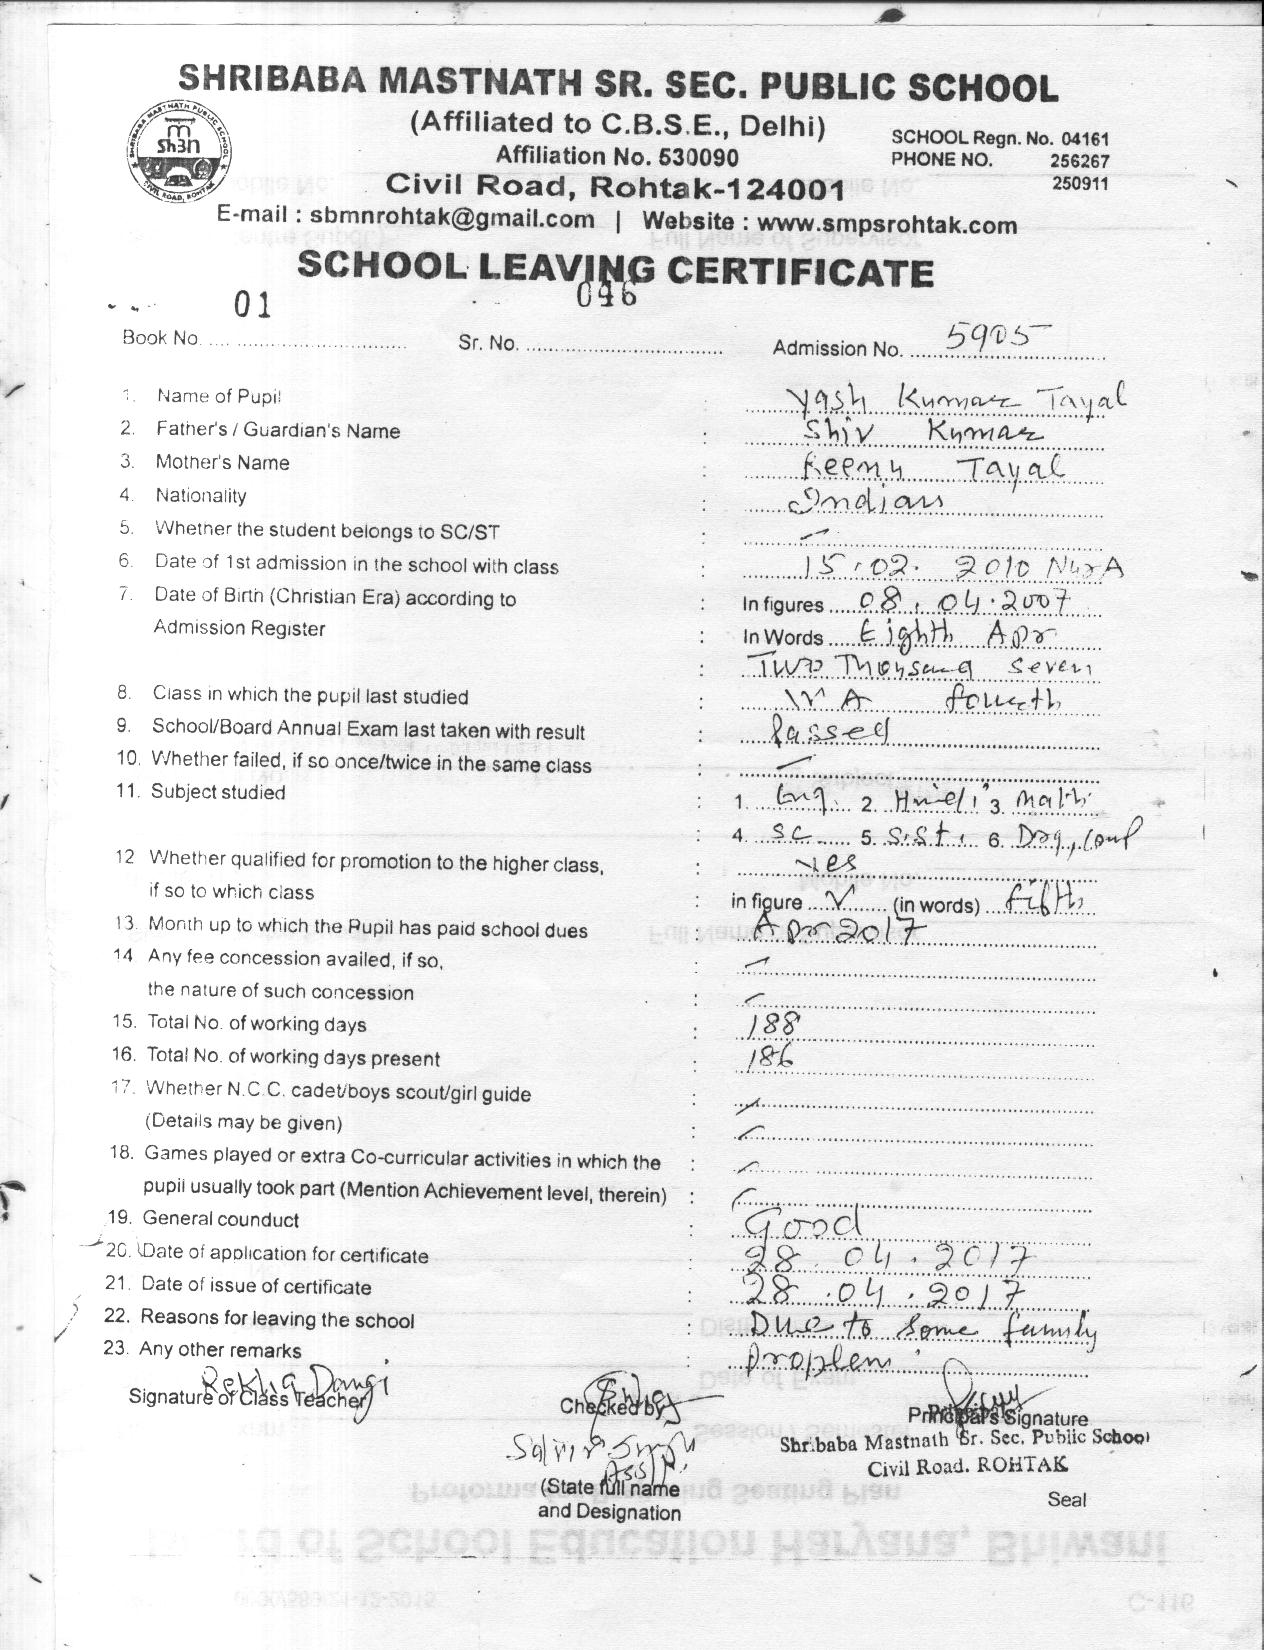 SHRIBABA MASTNATH SR. SEC. PUBLIC SCHOOL
SHRIBABA MASTNATH PUBLIC SCHOOL
CIVIL ROAD, ROHTAK
(Affiliated to C.B.S.E., Delhi)
Affiliation No. 530090
SCHOOL Regn. No. 04161
PHONE NO. 256267
250911
Civil Road, Rohtak-124001
E-mail : sbmnrohtak@gmail.com | Website : www.smpsrohtak.com
SCHOOL LEAVING CERTIFICATE
Book No. 01 Sr. No. 046 Admission No. 5905
1. Name of Pupil Yash Kumar Tayal
2. Father's / Guardian's Name : Shiv Kumar
3. Mother's Name : Reenu Tayal
4. Nationality : Indian
5. Whether the student belongs to SC/ST : —
6. Date of 1st admission in the school with class : 15.02.2010 Nur A
7. Date of Birth (Christian Era) according to : In figures 08.04.2007
Admission Register : In Words Eighth Apr
: Two Thousand Seven
8. Class in which the pupil last studied : IV A fourth
9. School/Board Annual Exam last taken with result : Passed
10. Whether failed, if so once/twice in the same class : —
11. Subject studied : 1. Eng. 2. Hindi 3. Math
: 4. SC 5. S.St. 6. Drg, Comp
12 Whether qualified for promotion to the higher class, : Yes
if so to which class : in figure V (in words) fifth
13. Month up to which the Pupil has paid school dues : Apr 2017
14 Any fee concession availed, if so, : —
the nature of such concession : —
15. Total No. of working days : 188
16. Total No. of working days present : 186
17. Whether N.C.C. cadet/boys scout/girl guide : —
(Details may be given) : —
18. Games played or extra Co-curricular activities in which the : —
pupil usually took part (Mention Achievement level, therein) : —
19. General counduct : Good
20. Date of application for certificate : 28.04.2017
21. Date of issue of certificate : 28.04.2017
22. Reasons for leaving the school : Due to some family
23. Any other remarks : problem.
Rekha Dangi
Signature of Class Teacher
Checked by
Principal's Signature
Shribaba Mastnath Sr. Sec. Public School
Civil Road. ROHTAK
(State full name
and Designation
Seal